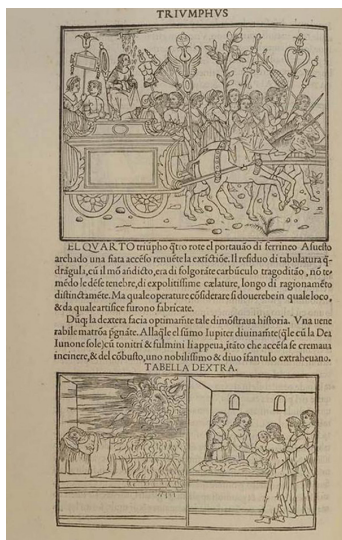 TRIVMPHVS
EL QVARTO triũpho q̃tro rote el portauão di ferrineo Asuesto
archado una fiata accẽso renuẽte la extictiõe. Il residuo di tabulatura q̃
drãgula, cũ il mõ añdicto, era di folgorãte carbũculo tragoditão, nõ te
mẽdo le dẽse tenebre, di expolitissime cælature, longo di ragionamẽto
distinctamẽte. Ma quale operatore cõsiderare si douerebe in quale loco,
& da quale artifice furono fabricate.
Dũq; la dextera facia optimam̃te tale dimõstraua historia. Vna uene
rabile matrõa pgnãte. Allaq̃le el sũmo Iupiter diuinam̃te (q̃le cũ la Dea
Iunone sole) cũ tonitri & fulmini li appeua, itãto che accẽsa se cremaua
incinere, & del cõbusto, uno nobilissimo & diuo ifantulo extraheuano.
TABELLA DEXTRA.